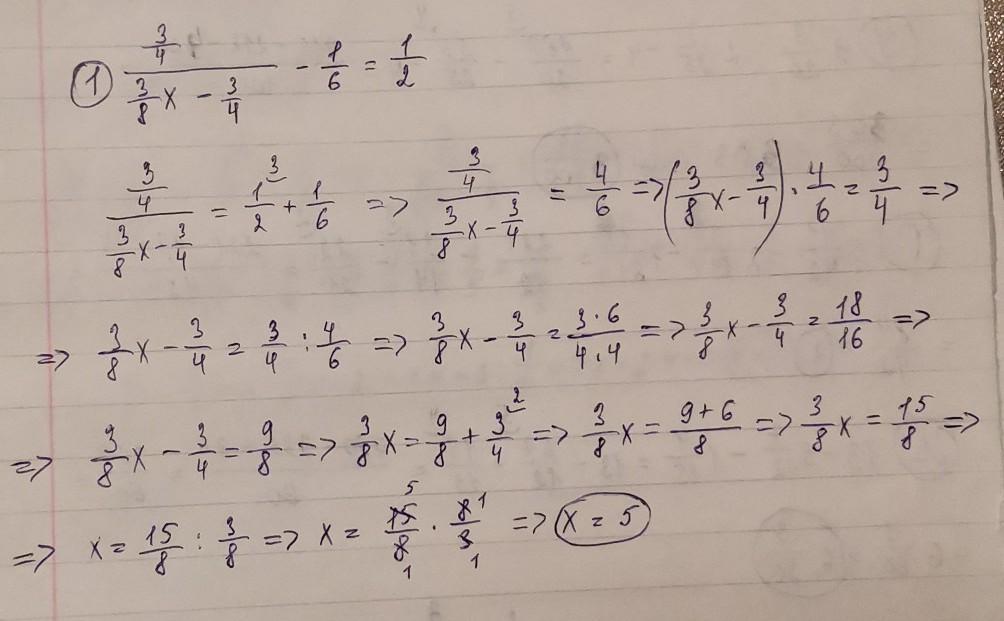 ① (3/4)/(3/8 x - 3/4) - 1/6 = 1/2
(3/4)/(3/8 x - 3/4) = 1/2 ³ + 1/6 => (3/4)/(3/8 x - 3/4) = 4/6 => (3/8 x - 3/4) · 4/6 = 3/4 =>
=> 3/8 x - 3/4 = 3/4 : 4/6 => 3/8 x - 3/4 = (3·6)/(4·4) => 3/8 x - 3/4 = 18/16 =>
=> 3/8 x - 3/4 = 9/8 => 3/8 x = 9/8 + 3/4 ² => 3/8 x = (9+6)/8 => 3/8 x = 15/8 =>
=> x = 15/8 : 3/8 => x = 15/8 ⁵₁ · 8/3 ¹₁ => x = 5